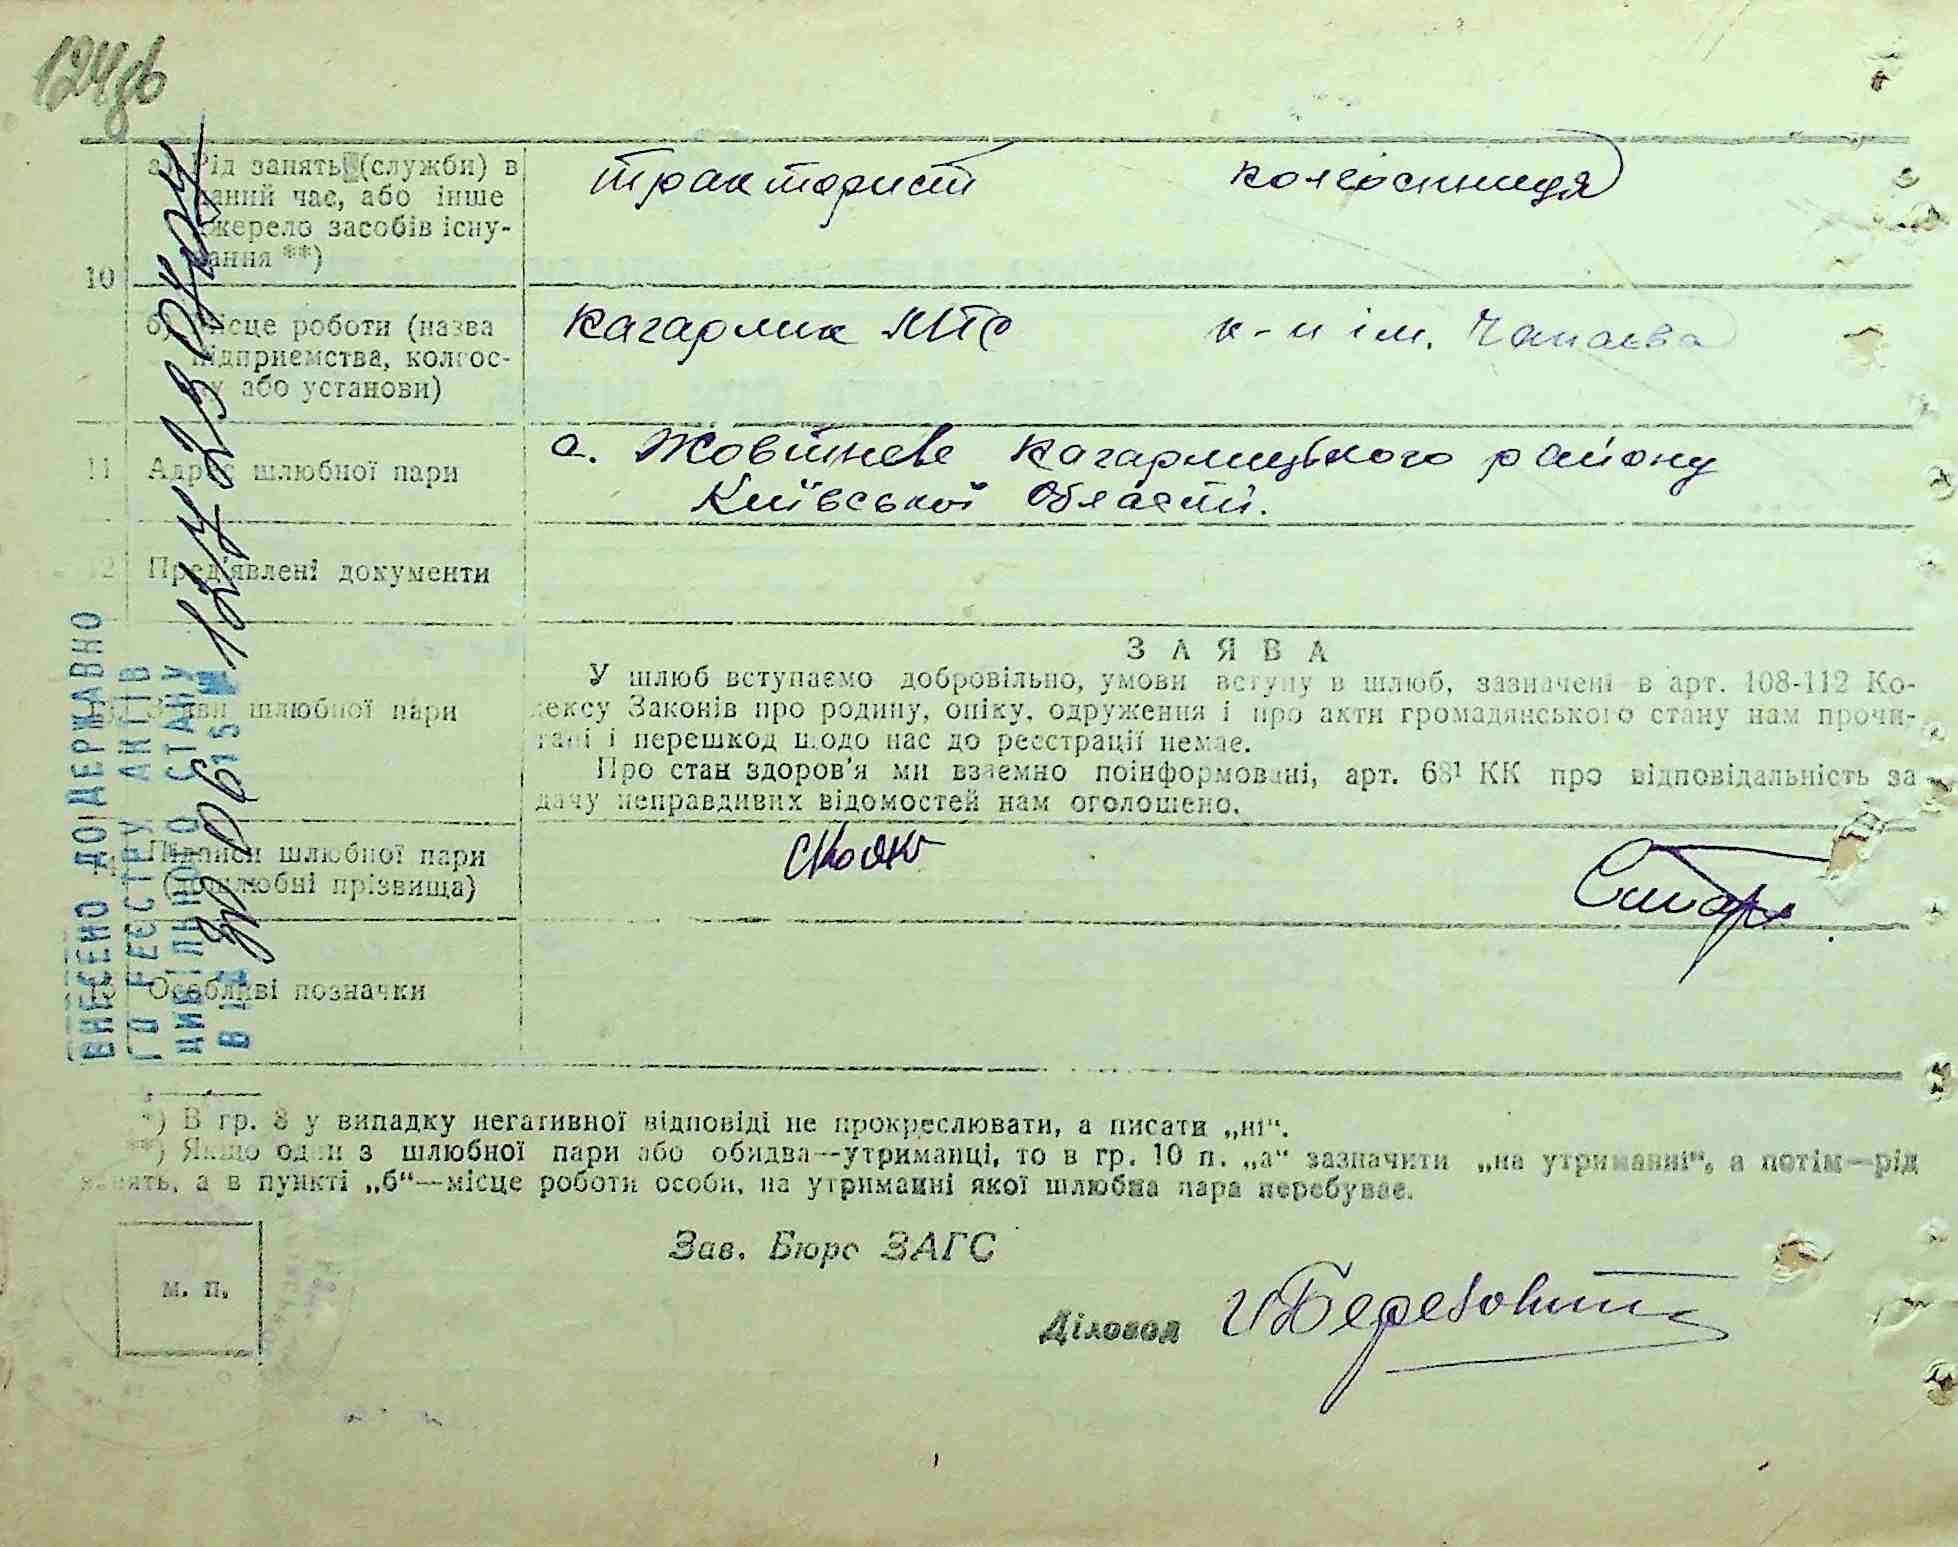 124зв
а) Рід занять (служби) в
даний час, або інше
джерело засобів існу-
вання **)
тракторист колгоспниця
10
б) Місце роботи (назва
підприємства, колгос-
пу або установи)
Кагарлик МТС к-п ім. Чапаєва
11 Адрес шлюбної пари
с. Жовтневе Кагарлицького району
Київської області.
12 Пред'явлені документи
ЗАЯВА
Заяви шлюбної пари
У шлюб вступаємо добровільно, умови вступу в шлюб, зазначені в арт. 108-112 Ко-
дексу Законів про родину, опіку, одруження і про акти громадянського стану нам прочи-
тані і перешкод щодо нас до реєстрації немає.
Про стан здоров'я ми взаємно поінформовані, арт. 68¹ КК про відповідальність за
дачу неправдивих відомостей нам оголошено.
Підписи шлюбної пари
(дошлюбні прізвища)
15 Особливі позначки
ВНЕСЕНО ДО ДЕРЖАВНО
ГО РЕЄСТРУ АКТІВ
ЦИВІЛЬНОГО СТАНУ
*) В гр. 8 у випадку негативної відповіді не прокреслювати, а писати „ні“.
**) Якщо один з шлюбної пари або обидва—утриманці, то в гр. 10 п. „а“ зазначити „на утриманні“, а потім—рід
занять, а в пункті „б“—місце роботи особи, на утриманні якої шлюбна пара перебуває.
Зав. Бюро ЗАГС
м. п.
Діловод